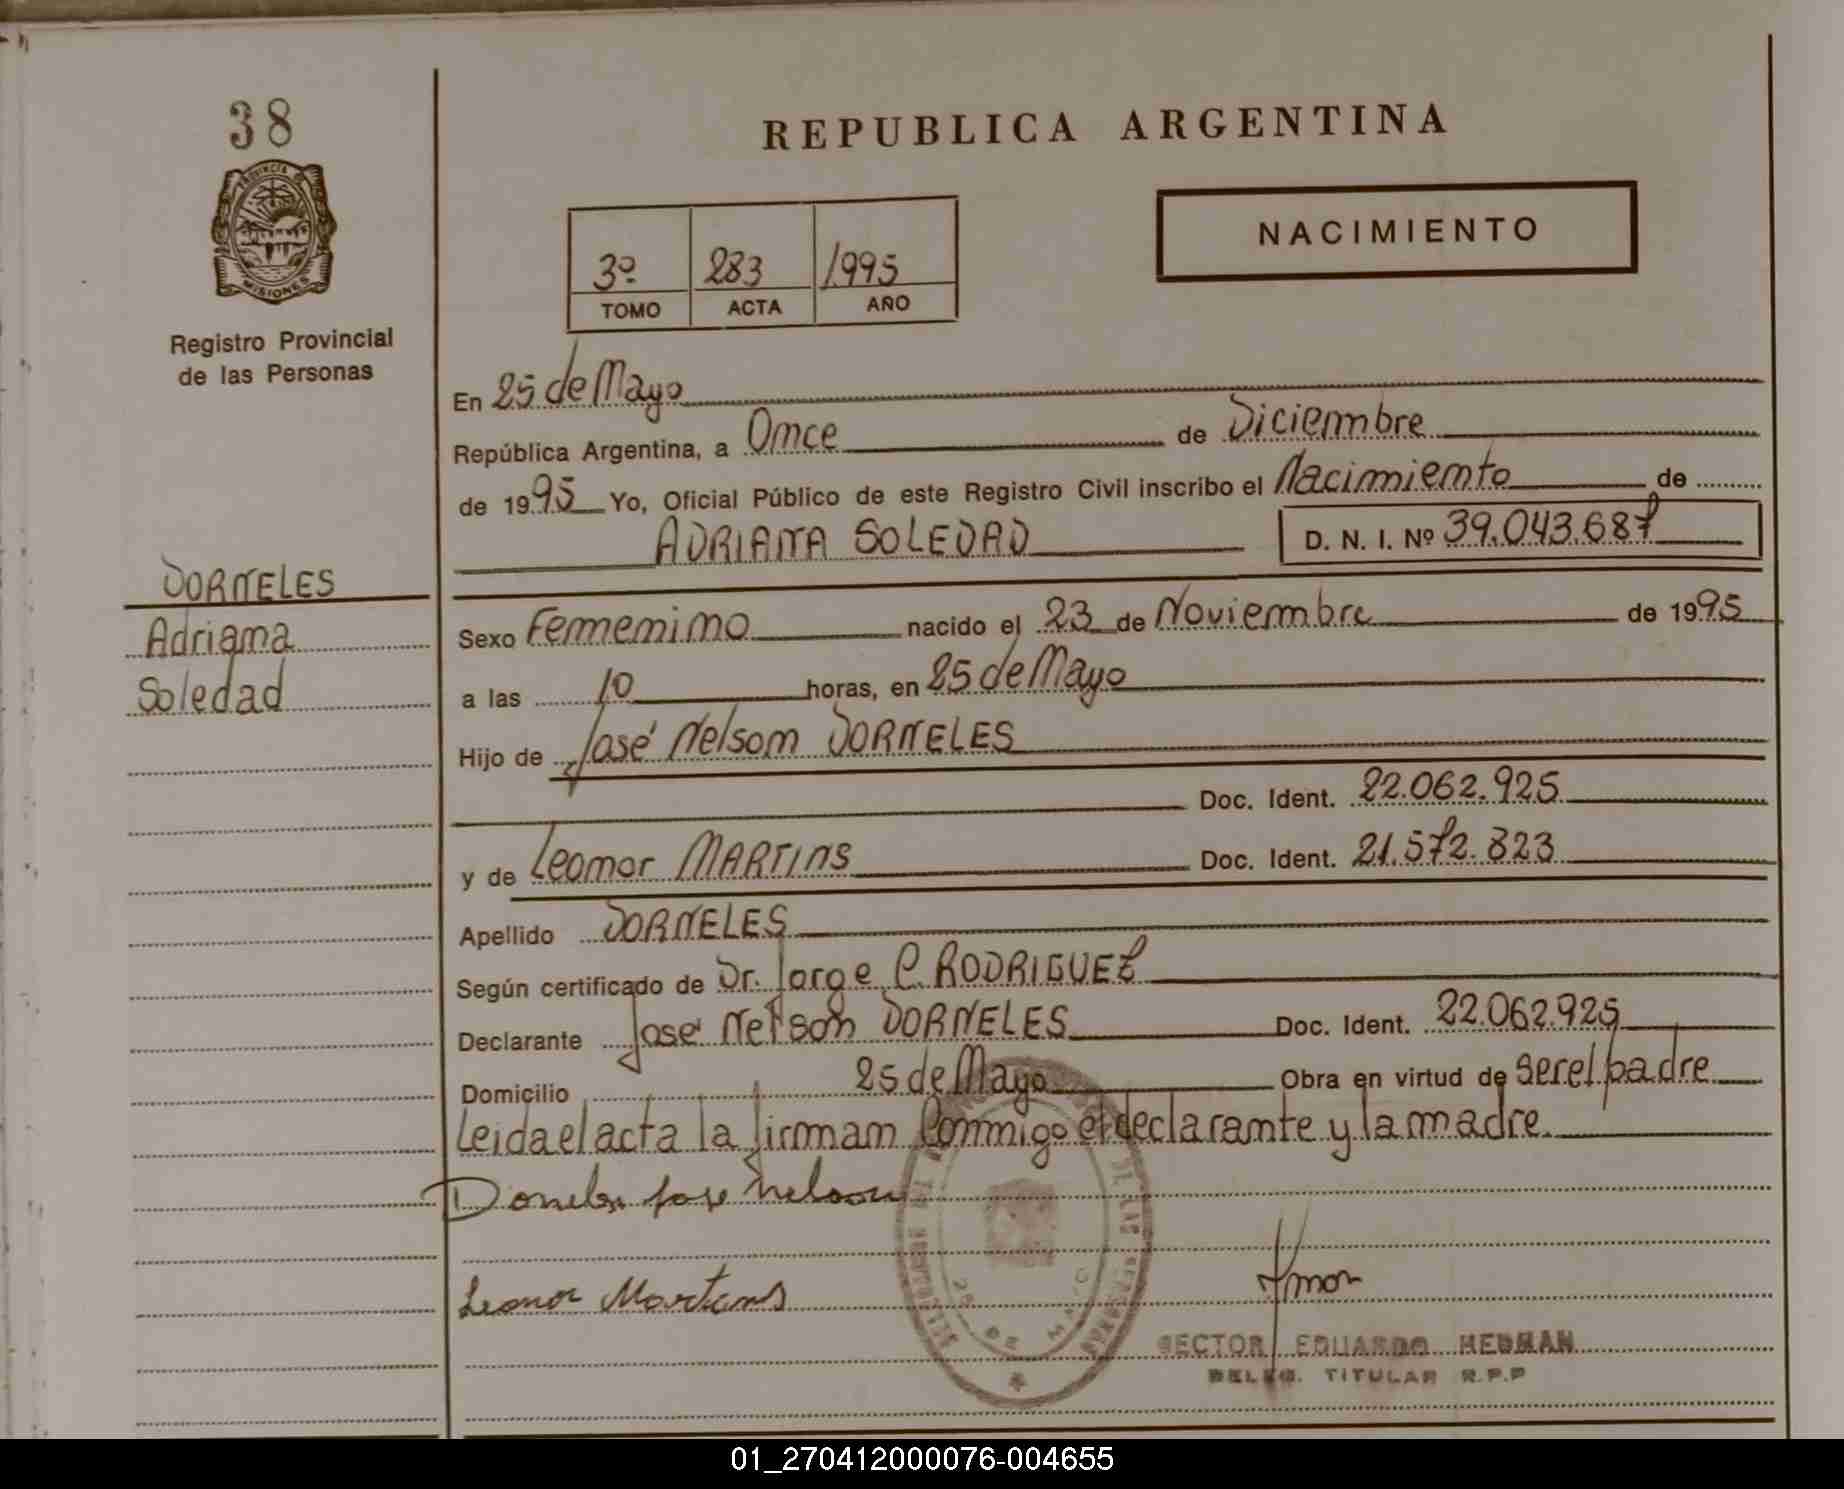 38
PROVINCIA DE
MISIONES
Registro Provincial
de las Personas
DORNELES
Adriana
Soledad
REPUBLICA ARGENTINA
3º 283 1995
TOMO ACTA AÑO
NACIMIENTO
En 25 de Mayo
República Argentina, a Once de Diciembre
de 1995 Yo, Oficial Público de este Registro Civil inscribo el Nacimiento de
ADRIANA SOLEDAD D. N. I. Nº 39.043.687
Sexo Femenino nacido el 23 de Noviembre de 1995
a las 10 horas, en 25 de Mayo
Hijo de José Nelson DORNELES
Doc. Ident. 22.062.925
y de Leonor MARTINS Doc. Ident. 21.572.823
Apellido DORNELES
Según certificado de Dr. Jorge C. RODRIGUEZ
Declarante José Nelson DORNELES Doc. Ident. 22.062.925
Domicilio 25 de Mayo Obra en virtud de ser el padre
Leida el acta la firman Conmigo el declarante y la madre.
Jose Nelson
Leonor Martins
DE LAS PERSONAS
25 DE MAYO
HECTOR EDUARDO
DELEG. TITULAR R.P.P
01_270412000076-004655